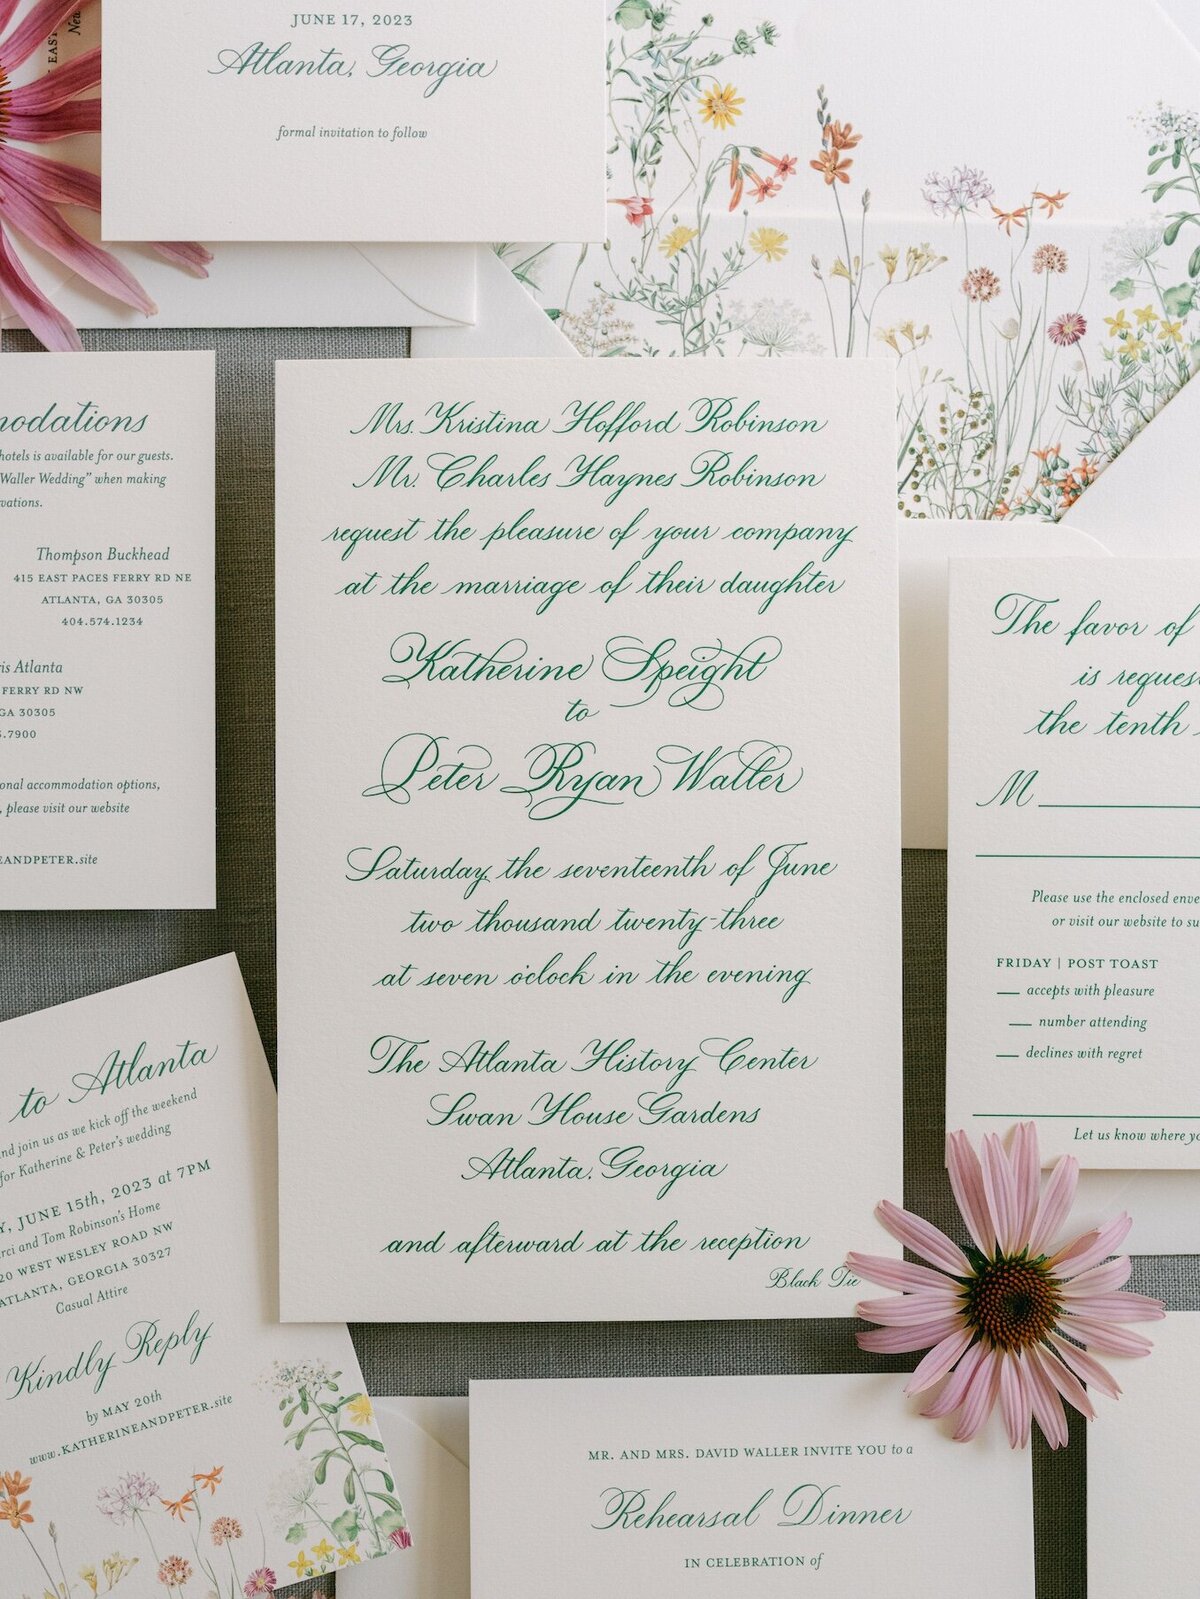 EAST
JUNE 17, 2023
Atlanta, Georgia
formal invitation to follow
Mrs. Kristina Hofford Robinson
Mr. Charles Haynes Robinson
request the pleasure of your company
at the marriage of their daughter
Katherine Speight
to
Peter Ryan Waller
Saturday, the seventeenth of June
two thousand twenty-three
at seven o'clock in the evening
The Atlanta History Center
Swan House Gardens
Atlanta, Georgia
and afterward at the reception
Black Tie
hotels is available for our guests.
Waller Wedding” when making
Thompson Buckhead
415 EAST PACES FERRY RD NE
ATLANTA, GA 30305
404.574.1234
Atlanta
FERRY RD NW
GA 30305
.7900
accommodation options,
, please visit our website
ANDPETER.site
to Atlanta
and join us as we kick off the weekend
for Katherine & Peter's wedding
, JUNE 15th, 2023 at 7PM
and Tom Robinson's Home
20 WEST WESLEY ROAD NW
ATLANTA, GEORGIA 30327
Casual Attire
Kindly Reply
by MAY 20th
www.KATHERINEANDPETER.site
The favor of
is
the tenth
M
Please use the enclosed
or visit our website to
FRIDAY | POST TOAST
accepts with pleasure
number attending
declines with regret
Let us know where
MR. AND MRS. DAVID WALLER INVITE YOU to a
Rehearsal Dinner
IN CELEBRATION of